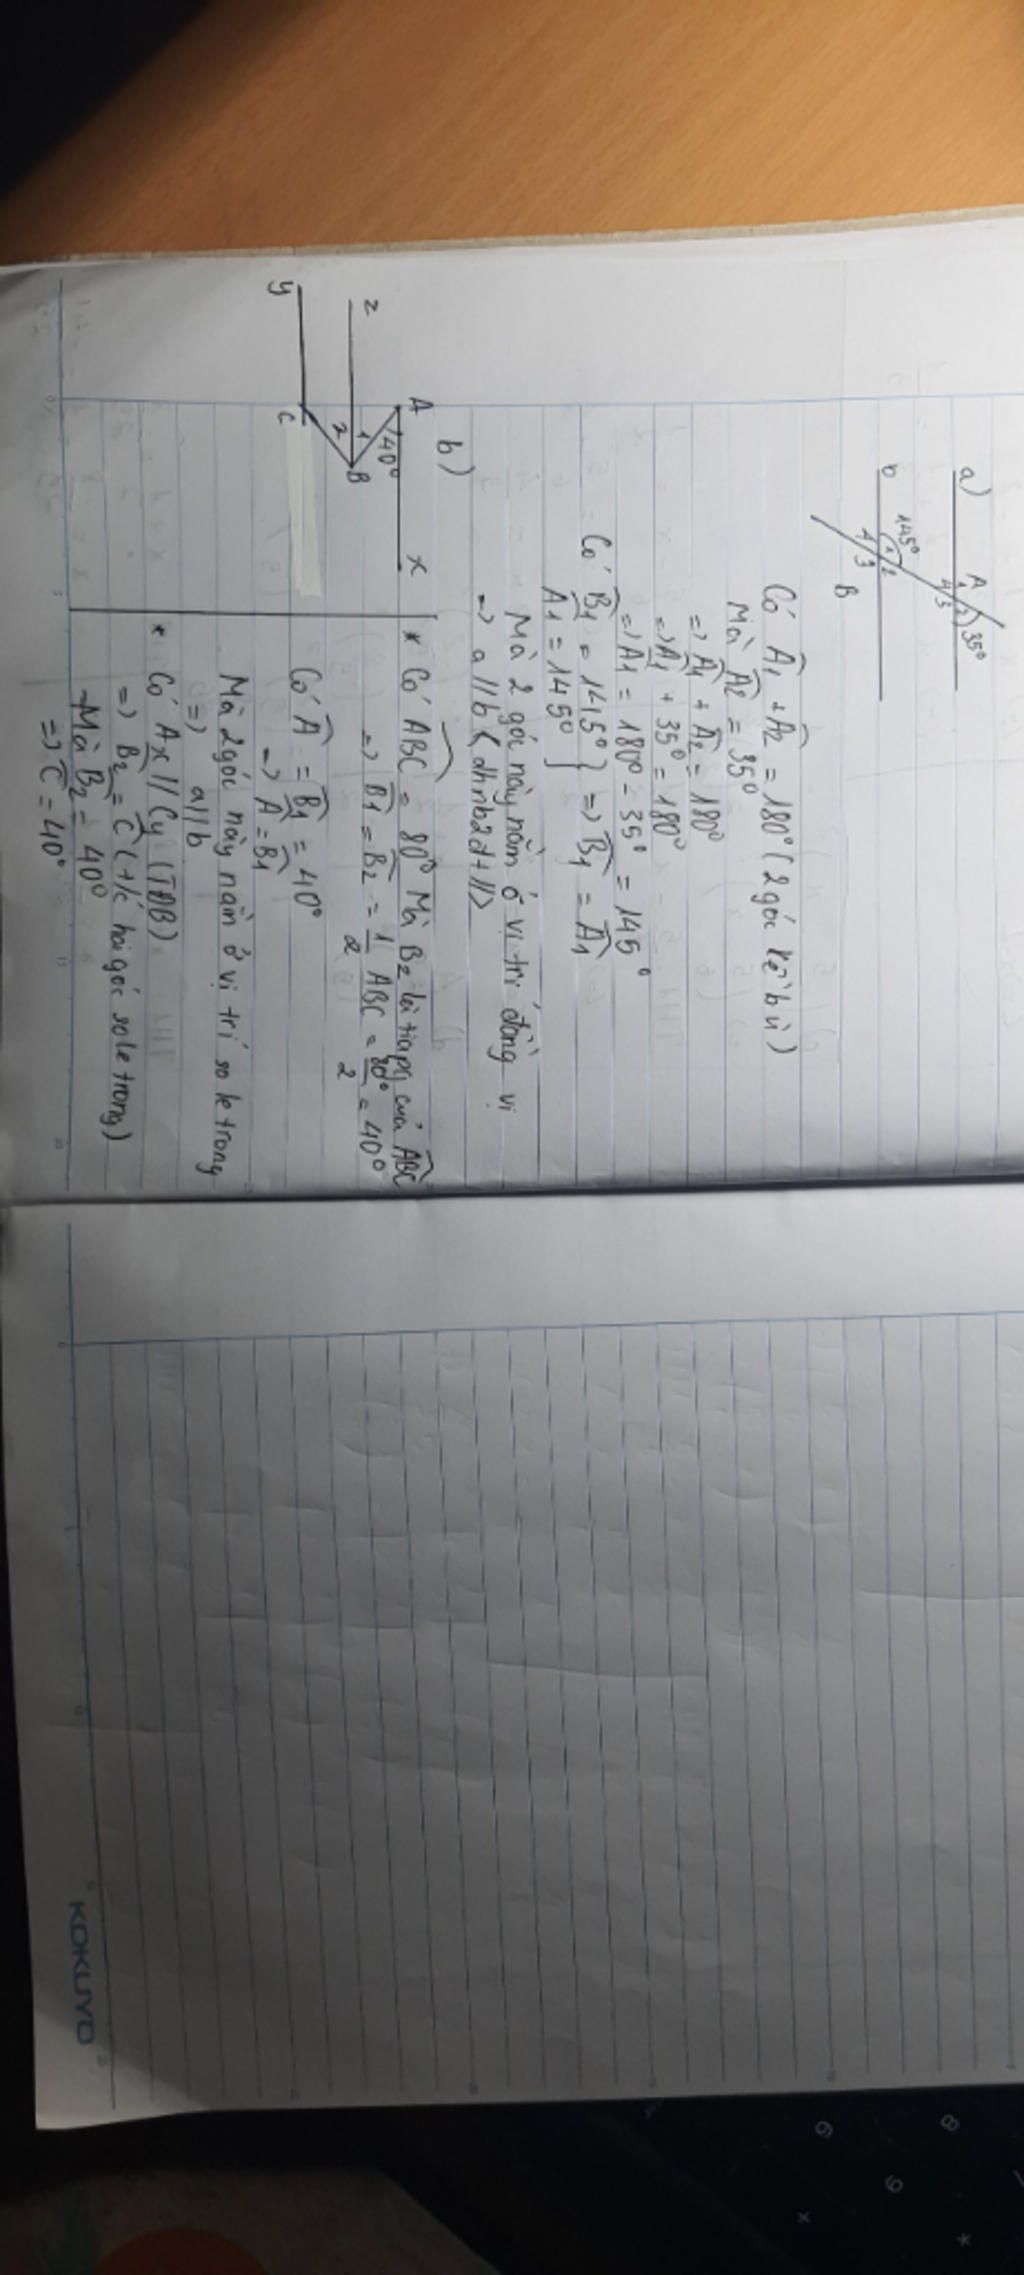 a)
A
1
2
35°
4
3
145°
1
2
b
4
3
B
Có Â1 + Â2 = 180° (2 góc kề bù)
Mà Â2 = 35°
=> Â1 + Â2 = 180°
=> Â1 + 35° = 180°
=> Â1 = 180° - 35° = 145°
Có B̂1 = 145° } => B̂1 = Â1
Â1 = 145°
Mà 2 góc này nằm ở vị trí đồng vị
=> a // b (dhnb2đt//)
b)
A
40°
x
z
1
2
B
y
C
* Có ABC = 80° Mà B2 là tia pg của ABC
=> B̂1 = B̂2 = 1/2 ABC = 80°/2 = 40°
Có Â = B̂1 = 40°
=> Â = B̂1
Mà 2 góc này nằm ở vị trí so le trong
=> a//b
* Có Ax // Cy (TĐB)
=> B̂2 = Ĉ (t/c hai góc so le trong)
Mà B̂2 = 40°
=> Ĉ = 40°
KOKUYO
8
6
9
×
*